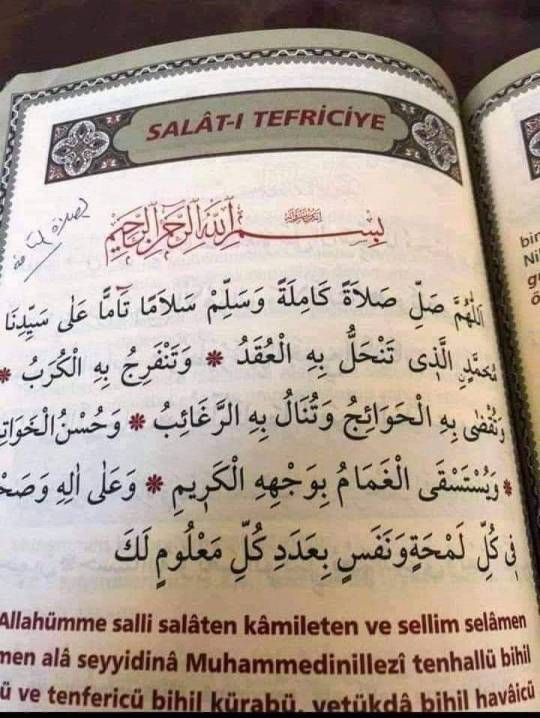 SALÂT-I TEFRİCİYE
بِسْمِ اللّٰهِ الرَّحْمٰنِ الرَّحِيمِ
اَللّٰهُمَّ صَلِّ صَلاَةً كَامِلَةً وَسَلِّمْ سَلاَمًا تَآمًّا عَلٰى سَيِّدِنَا
مُحَمَّدٍنِ الَّذِى تَنْحَلُّ بِهِ الْعُقَدُ * وَتَنْفَرِجُ بِهِ الْكُرَبُ *
وَتُقْضٰى بِهِ الْحَوَائِجُ وَتُنَالُ بِهِ الرَّغَائِبُ * وَحُسْنُ الْخَوَاتِ
* وَيُسْتَسْقَى الْغَمَامُ بِوَجْهِهِ الْكَرِيمِ * وَعَلٰى اٰلِهِ وَصَحْ
فِى كُلِّ لَمْحَةٍ وَنَفَسٍ بِعَدَدِ كُلِّ مَعْلُومٍ لَكَ
Allahümme salli salâten kâmileten ve sellim selâmen
men alâ seyyidinâ Muhammedinillezî tenhallü bihil
ü ve tenfericü bihil kürabü, vetükdâ bihil havâicü
bin
Ni